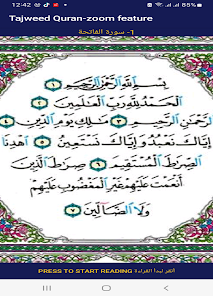 12:42
82%
Tajweed Quran-zoom feature
1- سورة الفاتحة
بِسْمِ اللَّهِ الرَّحْمَٰنِ الرَّحِيمِ ١
الْحَمْدُ لِلَّهِ رَبِّ الْعَالَمِينَ ٢
الرَّحْمَٰنِ الرَّحِيمِ ٣ مَالِكِ يَوْمِ الدِّينِ ٤
إِيَّاكَ نَعْبُدُ وَإِيَّاكَ نَسْتَعِينُ ٥ اهْدِنَا
الصِّرَاطَ الْمُسْتَقِيمَ ٦ صِرَاطَ الَّذِينَ
أَنْعَمْتَ عَلَيْهِمْ غَيْرِ الْمَغْضُوبِ عَلَيْهِمْ
وَلَا الضَّالِّينَ ٧
PRESS TO START READING أنقر لبدأ القراءة